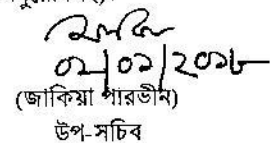 ০২/০১/২০১৮
(জাকিয়া পারভীন)
উপ-সচিব